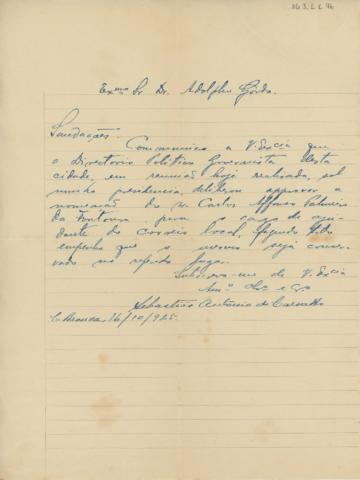 Exmo Sr Dr. Adolpho Gordo.
Saudações.
Communico a V. Excia que
o Directorio Politico Governista desta
cidade, em reunião hoje realizada, sob
minha presidencia, deliberou approvar a
nomeação do sr. Carlos Affonso Palmeira
da Fontoura para o cargo de aju-
dante do correio local, fazendo todo
empenho que o mesmo seja conser-
vado no referido lugar.
Subscrevo-me de V. Excia
Amo
Sebastião Antonio de Carvalho
16/10/925.